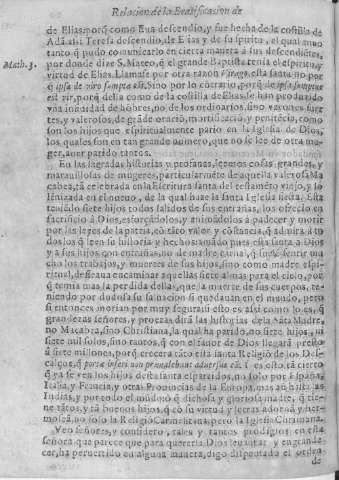 Relacion de la Beatificacion de
de Elias: porq̃ como Eua descendio, y fue hecha de la costilla de
Adã assi Teresa descendio, de Elias y de su spiritu, el qual muo
tanto q̃ pudo comunicarlo en cierta manera à sus descendiẽtes,
Math. 3.
por donde dize S. Mateo, q̃ el grande Baptista tenia el espiritu, y
virtud de Elias. Llamase por otra razon Virago, esta santa no por
q̃ ipsa de viro sumpta est, Sino por lo contrario, porq̃ de ipsa sumptus
est vir, porq̃ della como de la costilla de Elias se han producido
vna infinidad de hõbres, no de los ordinarios, sino varones fuer
tes, y valerosos, de grãde oració, mortificació, y penitẽcia, como
son los hijos que espiritualmente pario en la Iglesia de Dios,
los quales son en tan grande número, que no se lee de otra mu-
ger, auer parido tantos.
En las sagradas historias y profanas, leemos cosas grandes, y
marauillosas de mugeres, particularmẽte de aquella valerosa Ma
cabea, tã celebrada en la Escritura santa del testamẽto viejo, y so
lẽnizada en el nueuo, de la qual haze la santa Iglesia fiesta. Esta
teniẽdo siete hijos todos salidos de sus entrañas, los ofrecio en
sacrificio à Dios, esforçãdolos y animãdolos à padecer y morir
por las leyes de la patria, cõ tãto valor y cõstancia, q̃ admira à to
dos q̃ leen su historia y hechos: amãdo pues esta santa à Dios
y à sus hijos con entrañas, no de madre carnal, q̃ suele sentir mu
cho los trabajos, y muertes de sus hijos, sino como madre espi-
ritual, desseaua encaminar aquellas siete almas para el cielo, por
q̃ temia mas la perdida dellas, que la muerte de sus cuerpos, te-
niendo por dudosa su saluacion si quedauan en el mundo, pero
si entonces morian por muy segura: si esto es assi como lo es, q̃
grandezas señores, y proezas dirà las historias desta sãta Madre,
no Macabea, sino Christiana, la qual ha parido, no siete hijos, ni
siete mil solos, sino tantos, q̃ con el fauor de Dios llegarà presto
à siete millones, porq̃ crecera tãto esta santa Religiõ de los Des-
calços, q̃ portæ inferi non præualebunt aduersus eã. Y es esto tã cierto
q̃ ya se ven los hijos desta santa esparzidos, no solo por España,
Italia, y Francia, y otras Prouincias de la Europa, mas aũ hasta las
Indias, y por todo el mũdo: ò q̃ dichosa y gloriosa madre, q̃ tie-
ne tãtos, y tã buenos hijos, q̃ cõ su virtud y letras adornã y her-
mosean, no solo la Religiõ Carmelitana, pero la Iglesia Christiana.
Veo señores, y considero, tales y tantos prodigios en esta
señora que parece que para quererla Dios leuantar y engrande-
cer, ha peruertido en alguna manera, digo dispensado el orden
de